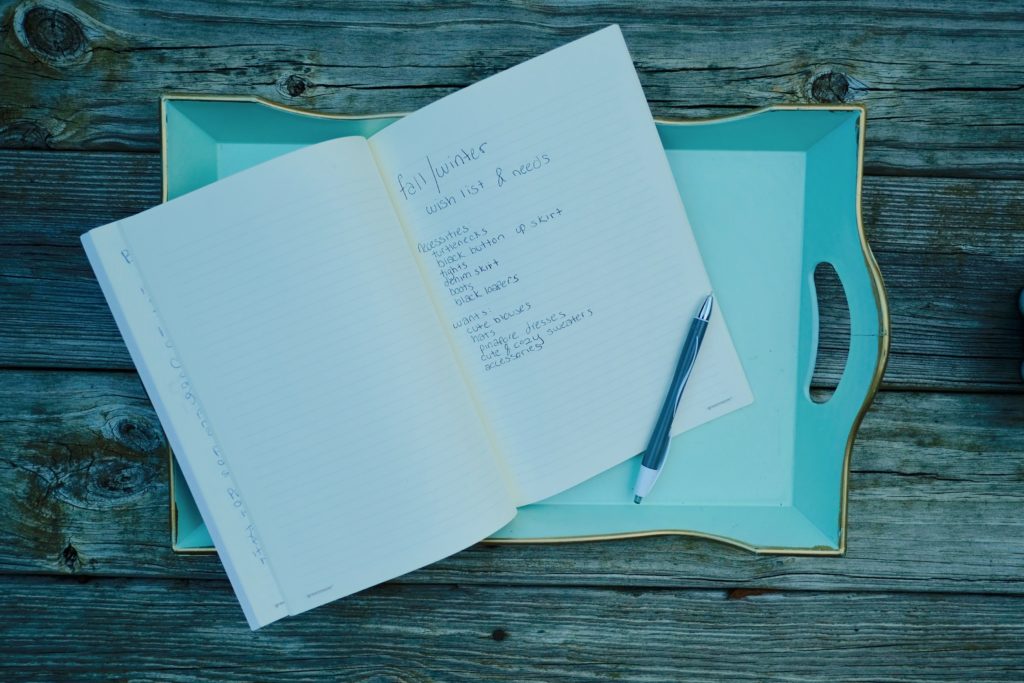 fall/winter
wish list & needs
necessities
turtlenecks
black button up skirt
tights
denim skirt
boots
black loafers
wants:
cute blouses
hats
pinafore dresses
cute & cozy sweaters
accessories